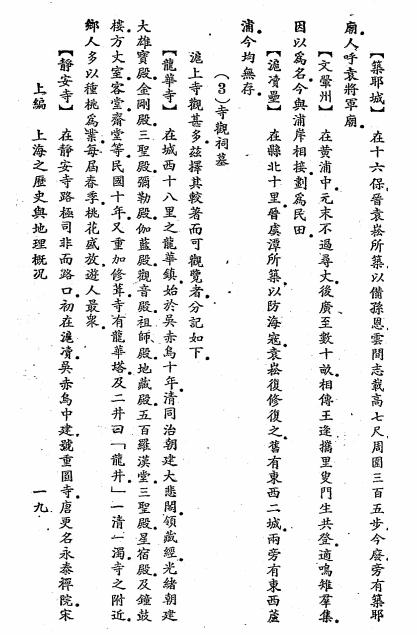 【築耶城】 在十六保晉袁崧所築以備孫恩雲間志載高七尺周圍三百五步今廢旁有築耶
廟人呼袁將軍廟
【文暈州】 在黃浦中元末不過尋丈後廣至數十畝相傳王逢攜里叟門生共登適鳴雉羣集
因以爲名今與浦岸相接劃爲民田
【滬瀆壘】 在縣北十里晉虞潭所築以防海寇袁崧復修復之舊有東西二城兩旁有東西蘆
浦今均無存
(3)寺觀祠墓
滬上寺觀甚多茲擇其較著而可觀覽者分記如下
【龍華寺】 在城西十八里之龍華鎮始於吳赤烏十年清同治朝建大悲閣領藏經光緒朝建
大雄寶殿金剛殿三聖殿彌勒殿伽藍殿觀音殿祖師殿地藏殿五百羅漢堂三聖殿星宿殿及鐘鼓
樓方丈室客堂齋堂等民國十年又重加修葺寺有龍華塔及二井曰「龍井」一清一濁寺之附近
鄉人多以種桃爲業每屆春季桃花盛放遊人最衆
【靜安寺】 在靜安寺路極司非而路口初在滬瀆吳赤烏中建號重圓寺唐更名永泰禪院宋
上編 上海之歷史與地理概況 一九